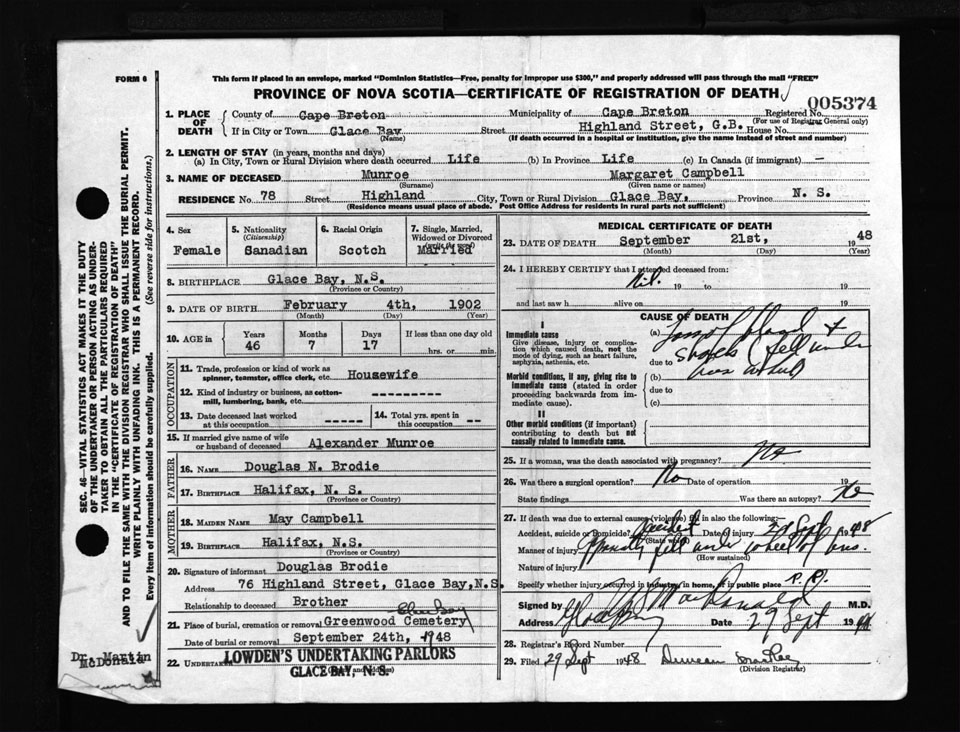 FORM 6
This form if placed in an envelope, marked "Dominion Statistics—Free, penalty for improper use $300," and properly addressed will pass through the mail "FREE"
PROVINCE OF NOVA SCOTIA—CERTIFICATE OF REGISTRATION OF DEATH
005374
1. PLACE OF DEATH { County of Cape Breton Municipality of Cape Breton Registered No.
(For use of Registrar General only)
If in City or Town Glace Bay Street Highland Street, G.B. House No.
(Name) (If death occurred in a hospital or institution, give the name instead of street and number)
2. LENGTH OF STAY (in years, months and days)
(a) In City, Town or Rural Division where death occurred Life (b) In Province Life (c) In Canada (if immigrant) —
3. NAME OF DECEASED Munroe Margaret Campbell
(Surname) (Given name or names)
RESIDENCE No. 78 Street Highland City, Town or Rural Division Glace Bay, Province N. S.
(Residence means usual place of abode. Post Office Address for residents in rural parts not sufficient)
4. Sex Female
5. Nationality (Citizenship) Sanadian
6. Racial Origin Scotch
7. Single, Married, Widowed or Divorced (write the word) Married
8. BIRTHPLACE Glace Bay, N.S.
(Province or Country)
9. DATE OF BIRTH February 4th, 1902
(Month) (Day) (Year)
10. AGE in { Years 46 Months 7 Days 17 If less than one day old
hrs. or min.
OCCUPATION
11. Trade, profession or kind of work as spinner, teamster, office clerk, etc. Housewife
12. Kind of industry or business, as cotton-mill, lumbering, bank, etc. ---------
13. Date deceased last worked at this occupation ------
14. Total yrs. spent in this occupation --
15. If married give name of wife or husband of deceased Alexander Munroe
FATHER
16. NAME Douglas N. Brodie
17. BIRTHPLACE Halifax, N. S.
(Province or Country)
MOTHER
18. MAIDEN NAME May Campbell
19. BIRTHPLACE Halifax, N.S.
(Province or Country)
20. Signature of informant Douglas Brodie
Address 76 Highland Street, Glace Bay,N.S.
Relationship to deceased Brother
21. Place of burial, cremation or removal Greenwood Cemetery Glace Bay
Date of burial or removal September 24th, 1948
22. Undertaker LOWDEN'S UNDERTAKING PARLORS
GLACE BAY, N. S.
MEDICAL CERTIFICATE OF DEATH
23. DATE OF DEATH September 21st, 1948
(Month) (Day) (Year)
24. I HEREBY CERTIFY that I attended deceased from:
Nil. 19 to 19
and last saw h alive on 19
CAUSE OF DEATH
I
Immediate cause
Give disease, injury or complication which caused death, not the mode of dying, such as heart failure, asphyxia, asthenia, etc.
(a) Loss of blood +
due to shock (fell under
Morbid conditions, if any, giving rise to immediate cause (stated in order proceeding backwards from immediate cause).
(b)
due to
(c)
II
Other morbid conditions (if important) contributing to death but not causally related to immediate cause.
25. If a woman, was the death associated with pregnancy? No
26. Was there a surgical operation? No Date of operation 19
State findings Was there an autopsy? No
27. If death was due to external causes (violence) fill in also the following:—
Accident, suicide or homicide? Accident Date of injury 21 Sept 1948
(State which)
Manner of injury fell under wheel of bus.
(How sustained)
Nature of injury
Specify whether injury occurred in industry, in home, or in public place P.P.
Signed by MacDonald M.D.
Address Glace Bay Date 29 Sept 1948
28. Registrar's Record Number
29. Filed 29 Sept 1948 Duncan MacKay
(Division Registrar)
SEC. 46—VITAL STATISTICS ACT MAKES IT THE DUTY
OF THE UNDERTAKER OR PERSON ACTING AS UNDER-
TAKER TO OBTAIN ALL THE PARTICULARS REQUIRED
IN THE "CERTIFICATE OF REGISTRATION OF DEATH"
AND TO FILE THE SAME WITH THE DIVISION REGISTRAR WHO SHALL ISSUE THE BURIAL PERMIT.
WRITE PLAINLY WITH UNFADING INK. THIS IS A PERMANENT RECORD.
Every item of information should be carefully supplied. (See reverse side for instructions.)
Dr. Martin
McDonald